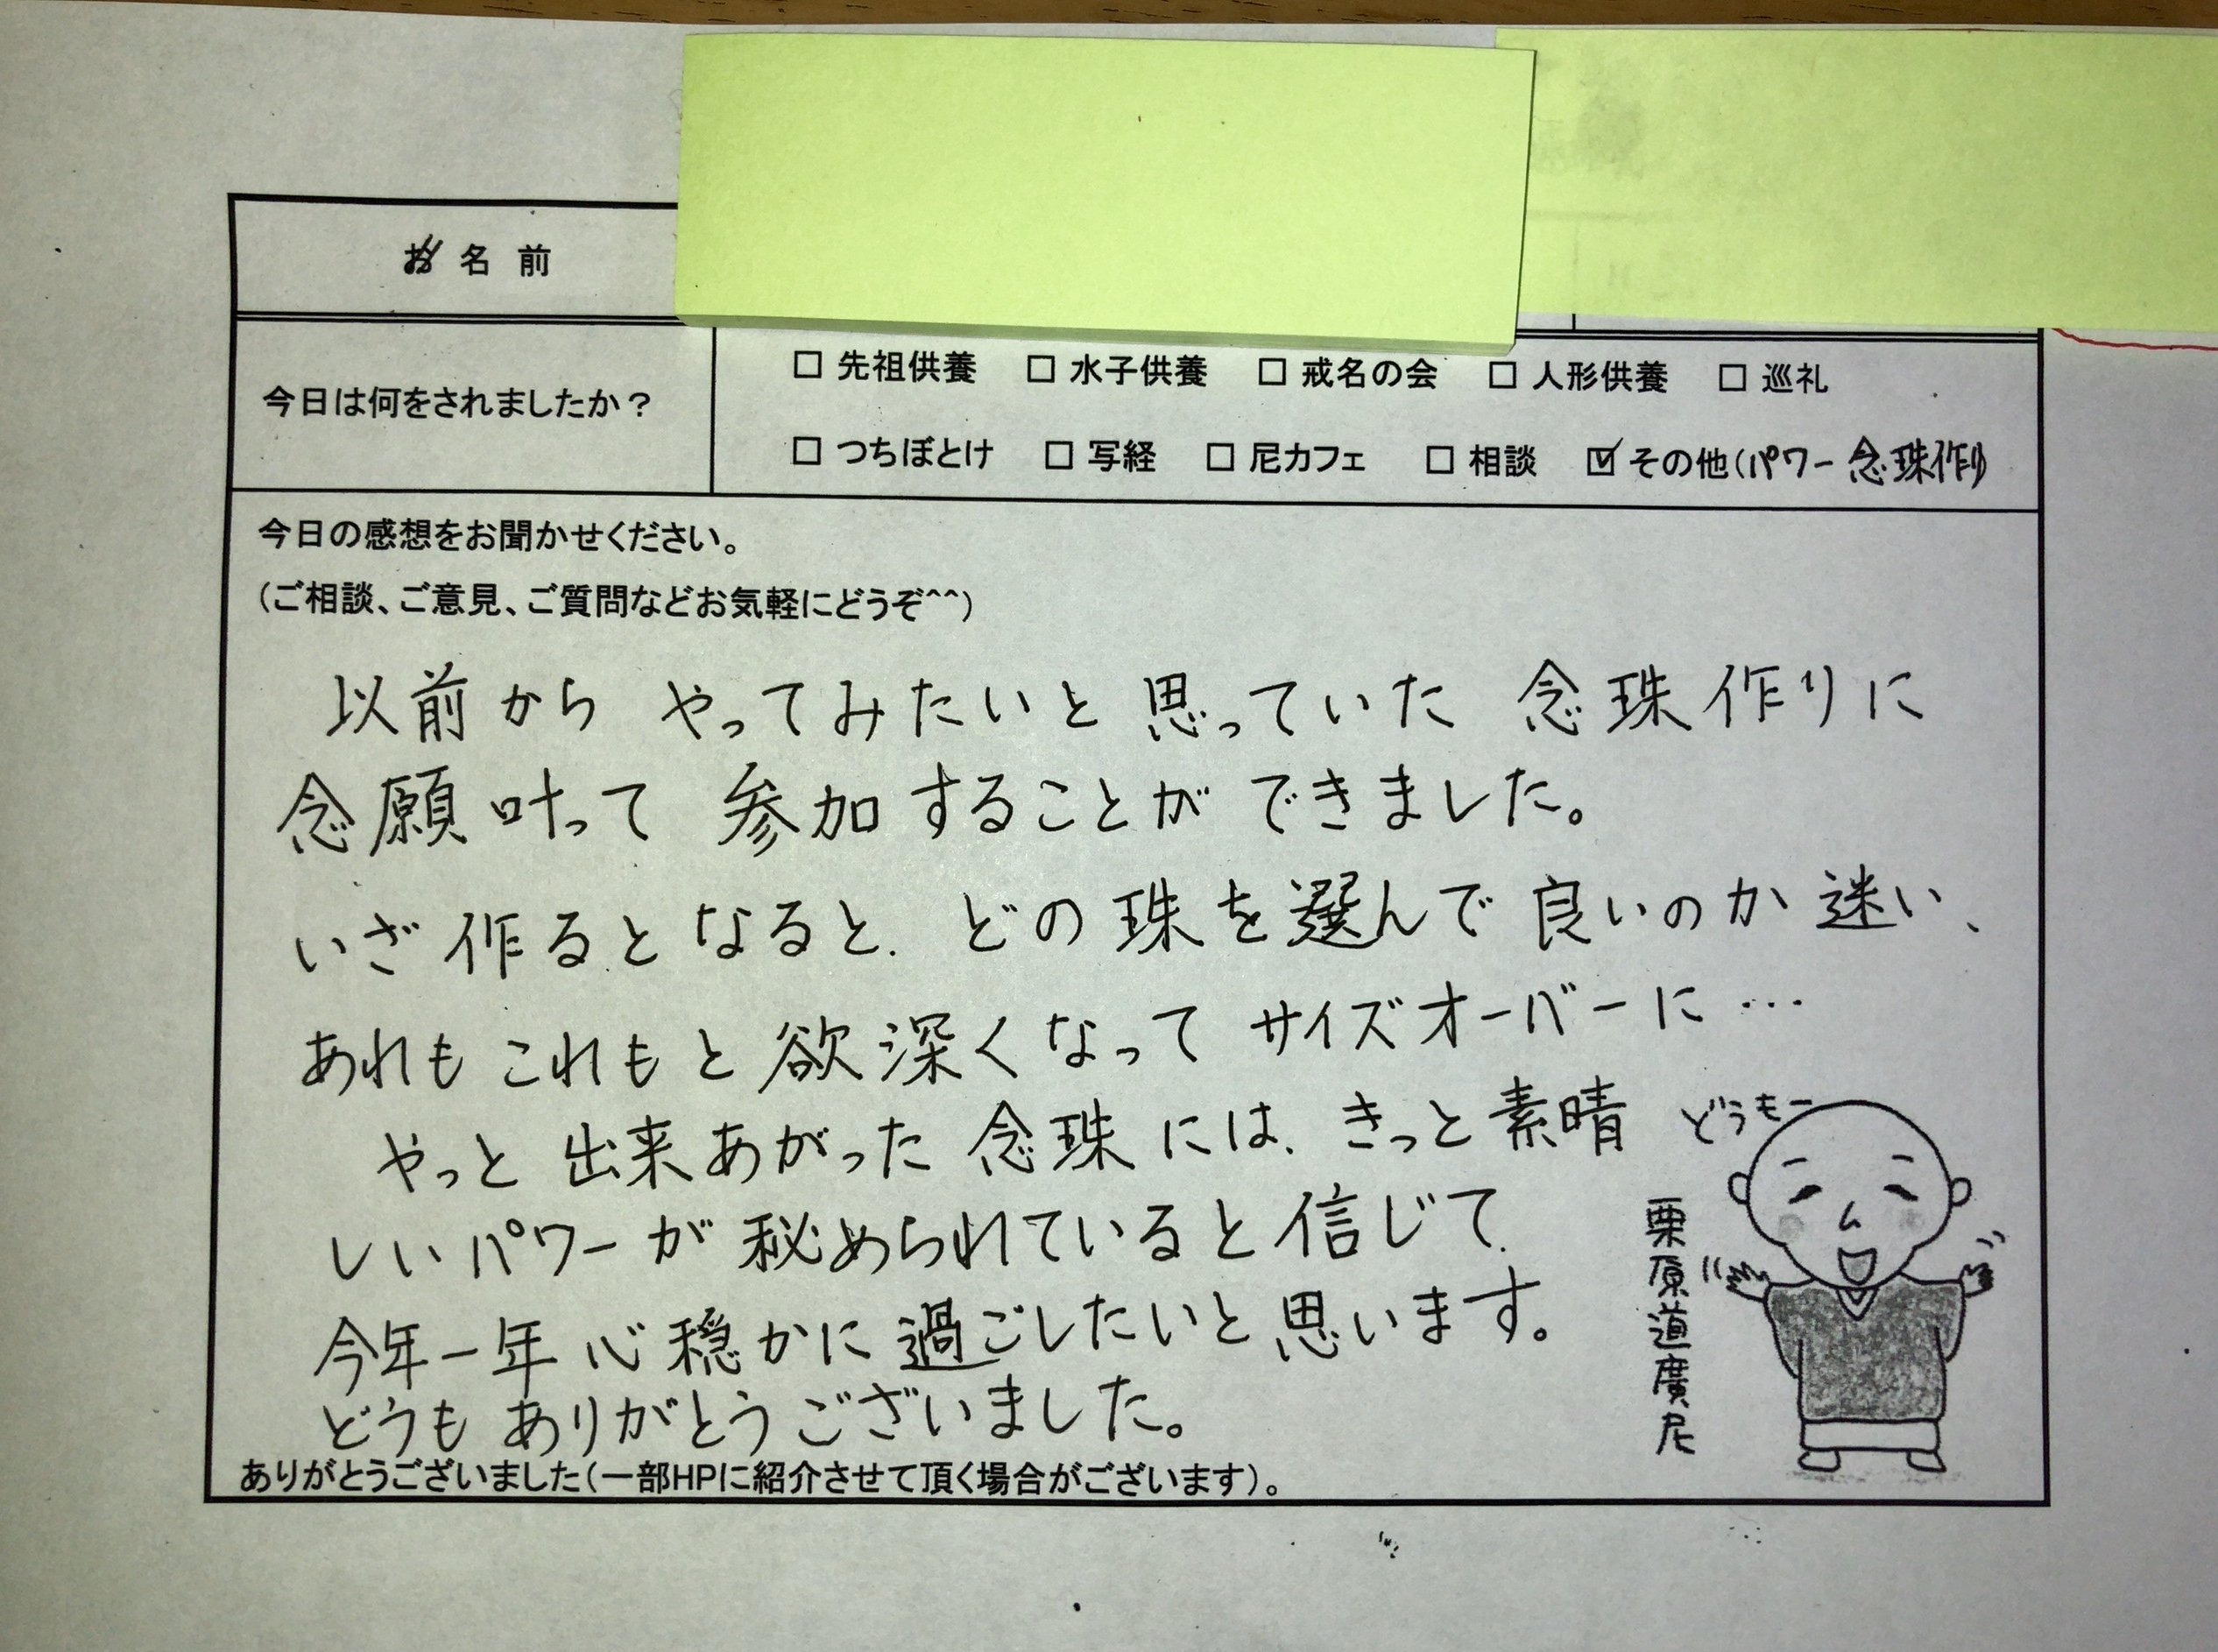 お名前
今日は何をされましたか？
□ 先祖供養 □ 水子供養 □ 戒名の会 □ 人形供養 □ 巡礼
□ つちぼとけ □ 写経 □ 尼カフェ □ 相談 ☑ その他(パワー念珠作り
今日の感想をお聞かせください。
(ご相談、ご意見、ご質問などお気軽にどうぞ^^)
以前から やってみたいと思っていた 念珠作りに
念願叶って 参加することができました。
いざ作るとなると、どの珠を選んで良いのか迷い、
あれもこれもと欲深くなって サイズオーバーに…
やっと出来あがった念珠には、きっと素晴
しいパワーが秘められていると信じて、
今年一年心穏かに過ごしたいと思います。
どうもありがとうございました。
どうもー
栗原道廣尼
ありがとうございました(一部HPに紹介させて頂く場合がございます)。